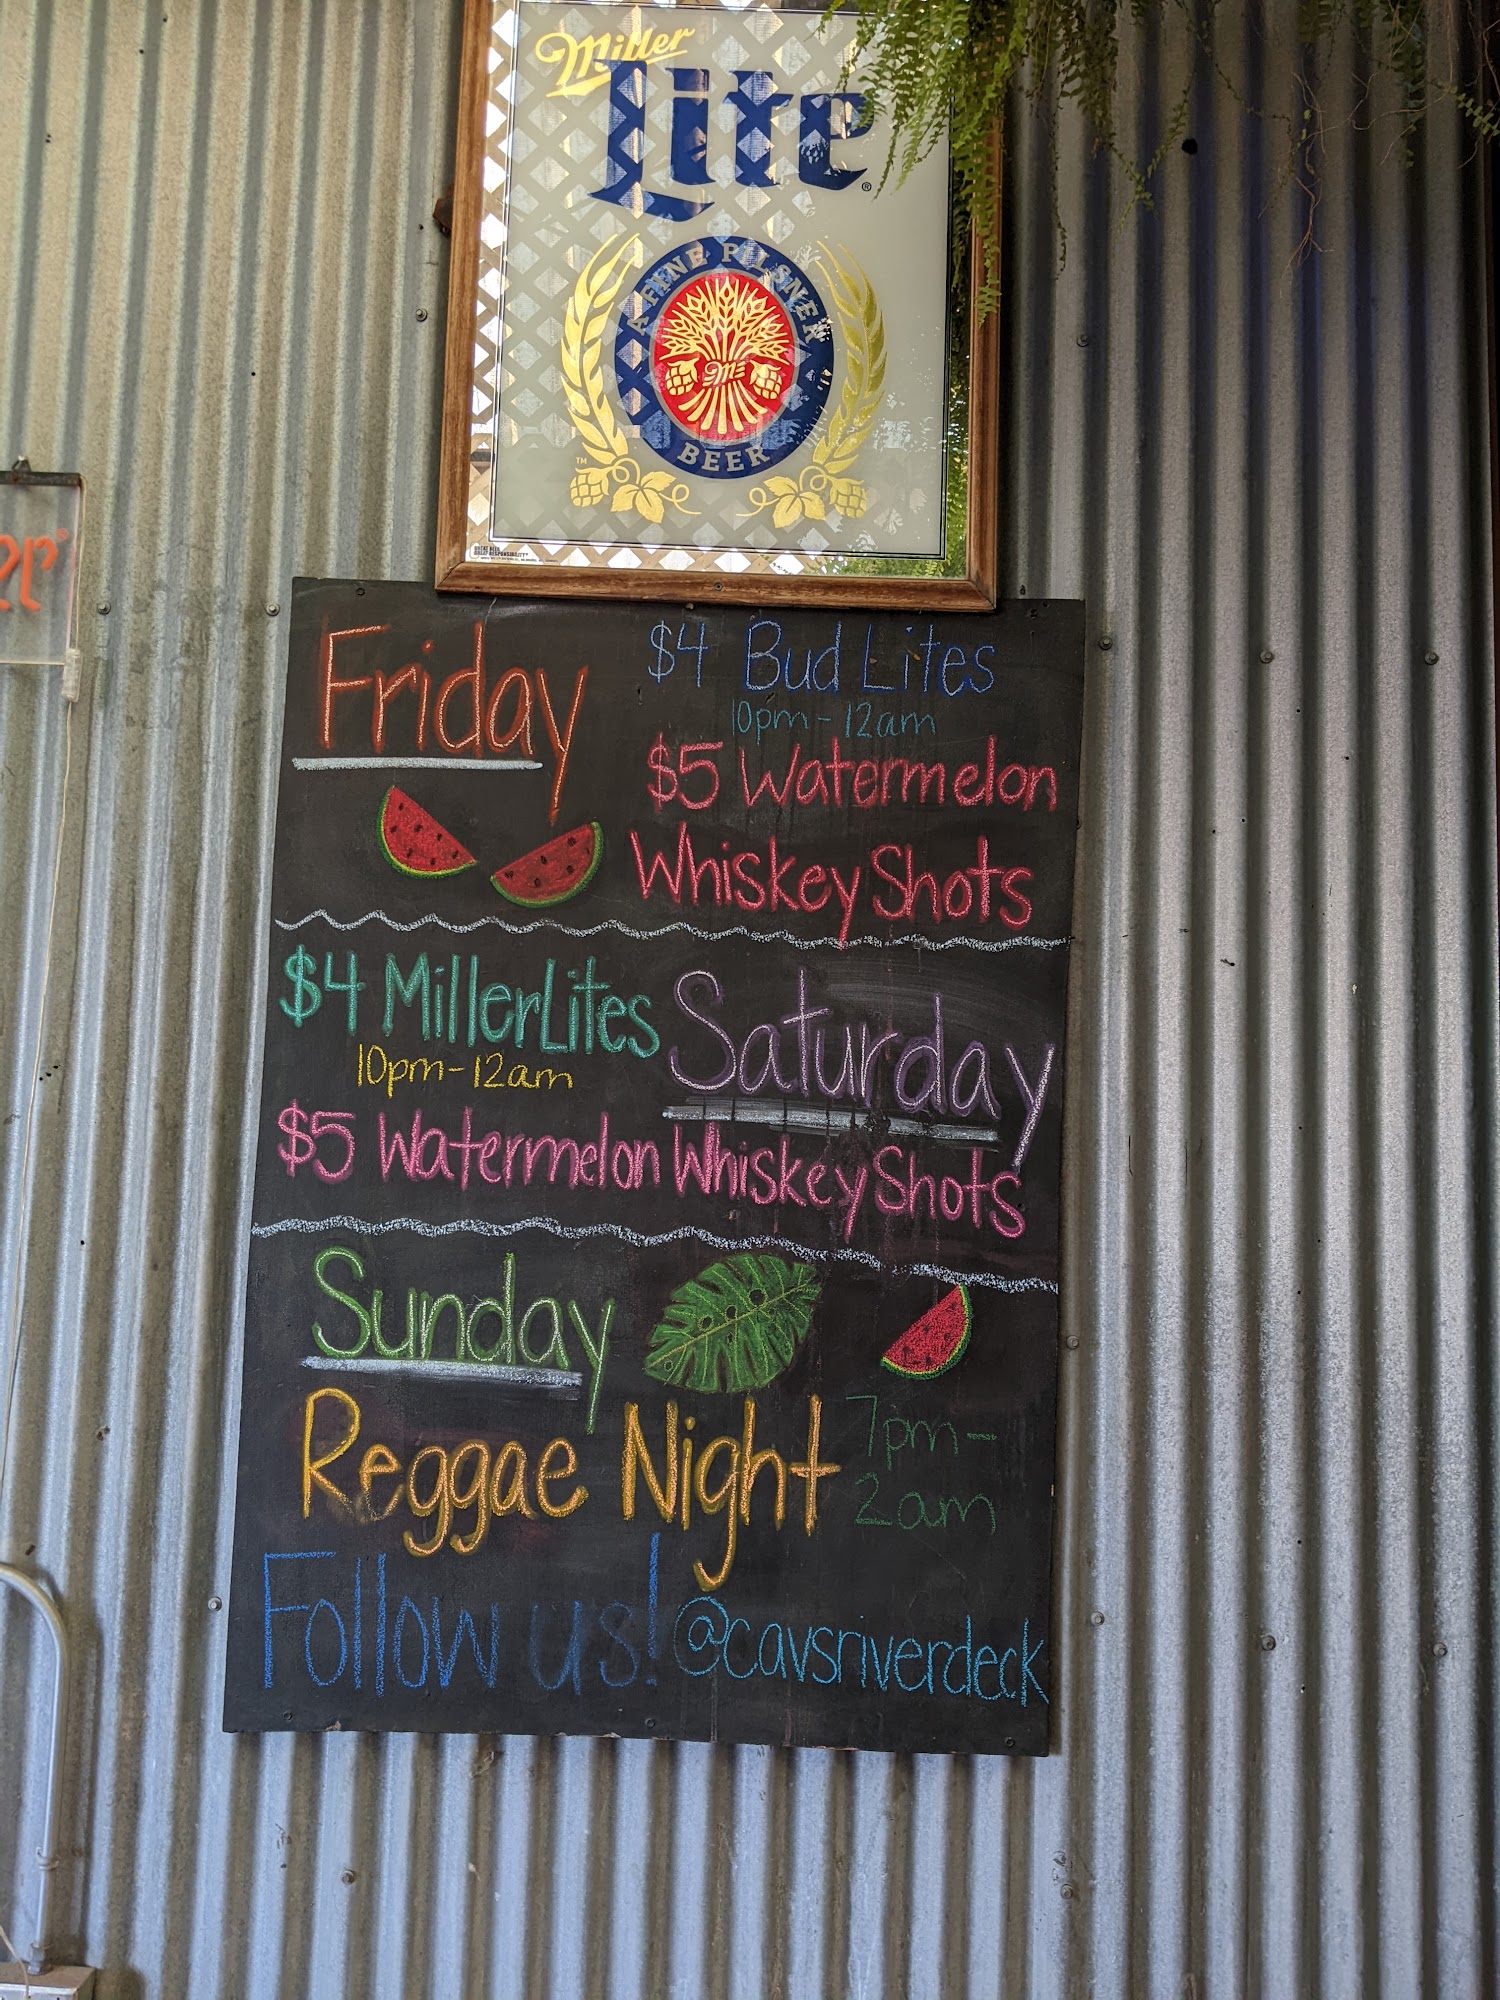 Miller
Lite
A FINE PILSNER
BEER
Friday
$4 Bud Lites
10pm-12am
$5 Watermelon
Whiskey Shots
$4 MillerLites
10pm-12am
Saturday
$5 Watermelon Whiskey Shots
Sunday
Reggae Night
7pm-
2am
Follow us! @cavsriverdeck